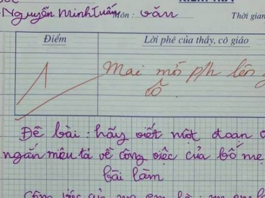 Nguyễn Minh Tuấn Môn : văn Thời gian
Điểm Lời phê của thầy, cô giáo
1 Mai mời p/h lên
Đề bài : hãy viết một đoạn
ngắn miêu tả về công việc của bố mẹ
bài làm